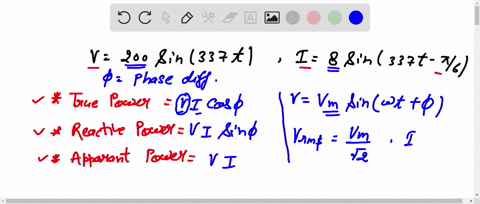 V = 200 Sin(337t) , I = 8 Sin(337t - π/6)
φ = Phase diff.
* True Power = V I Cosφ
* Reactive Power = V I Sinφ
* Apparant Power = V I
V = Vm Sin(ωt + φ)
Vrms = Vm/√2 . I